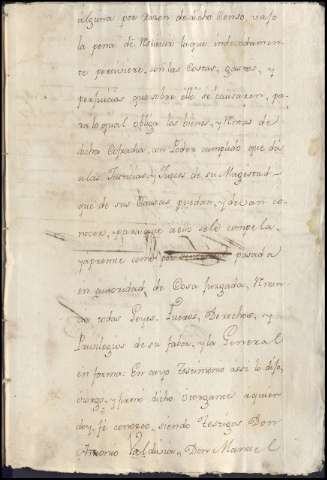 alguna por razon de dicho Censo, vajo
la pena de restituir la que indevidamen
te percibiere, con las Costas, gastos, y
perjuicios que sobre ello se causaren, pa
ra lo qual obliga los bienes, y rentas de
dicha Cofradia, con Poder cumplido que da
a las Justicias, y Jueces de su Magestad
que de sus Causas puedan, y devan co
nocer, para que a ello se le compela
y apremie como por pasada
en autoridad de Cosa juzgada, renun
cia todas Leyes, Fueros, Derechos, y
Privilegios de su favor, y la General
en forma: En cuyo testimonio assi lo dijo,
otorgo, y firmo dicho otorgante a quien
doy fe conozco, siendo testigos Don
Antonio Valdivia, Don Manuel